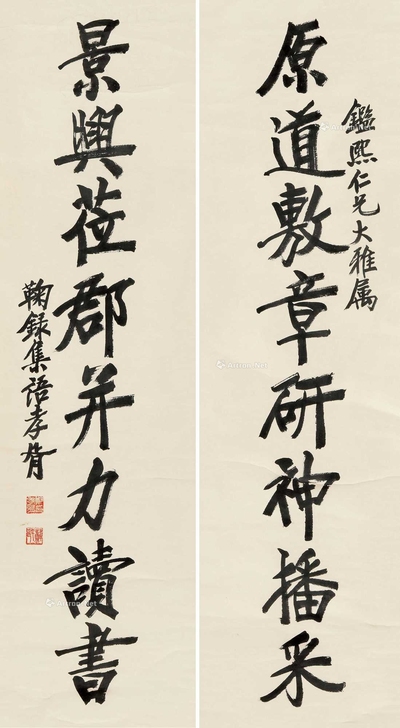 鑑熙仁兄大雅属
原道敷章研神播采
景興莅郡并力讀書
鞠録集語孝胥